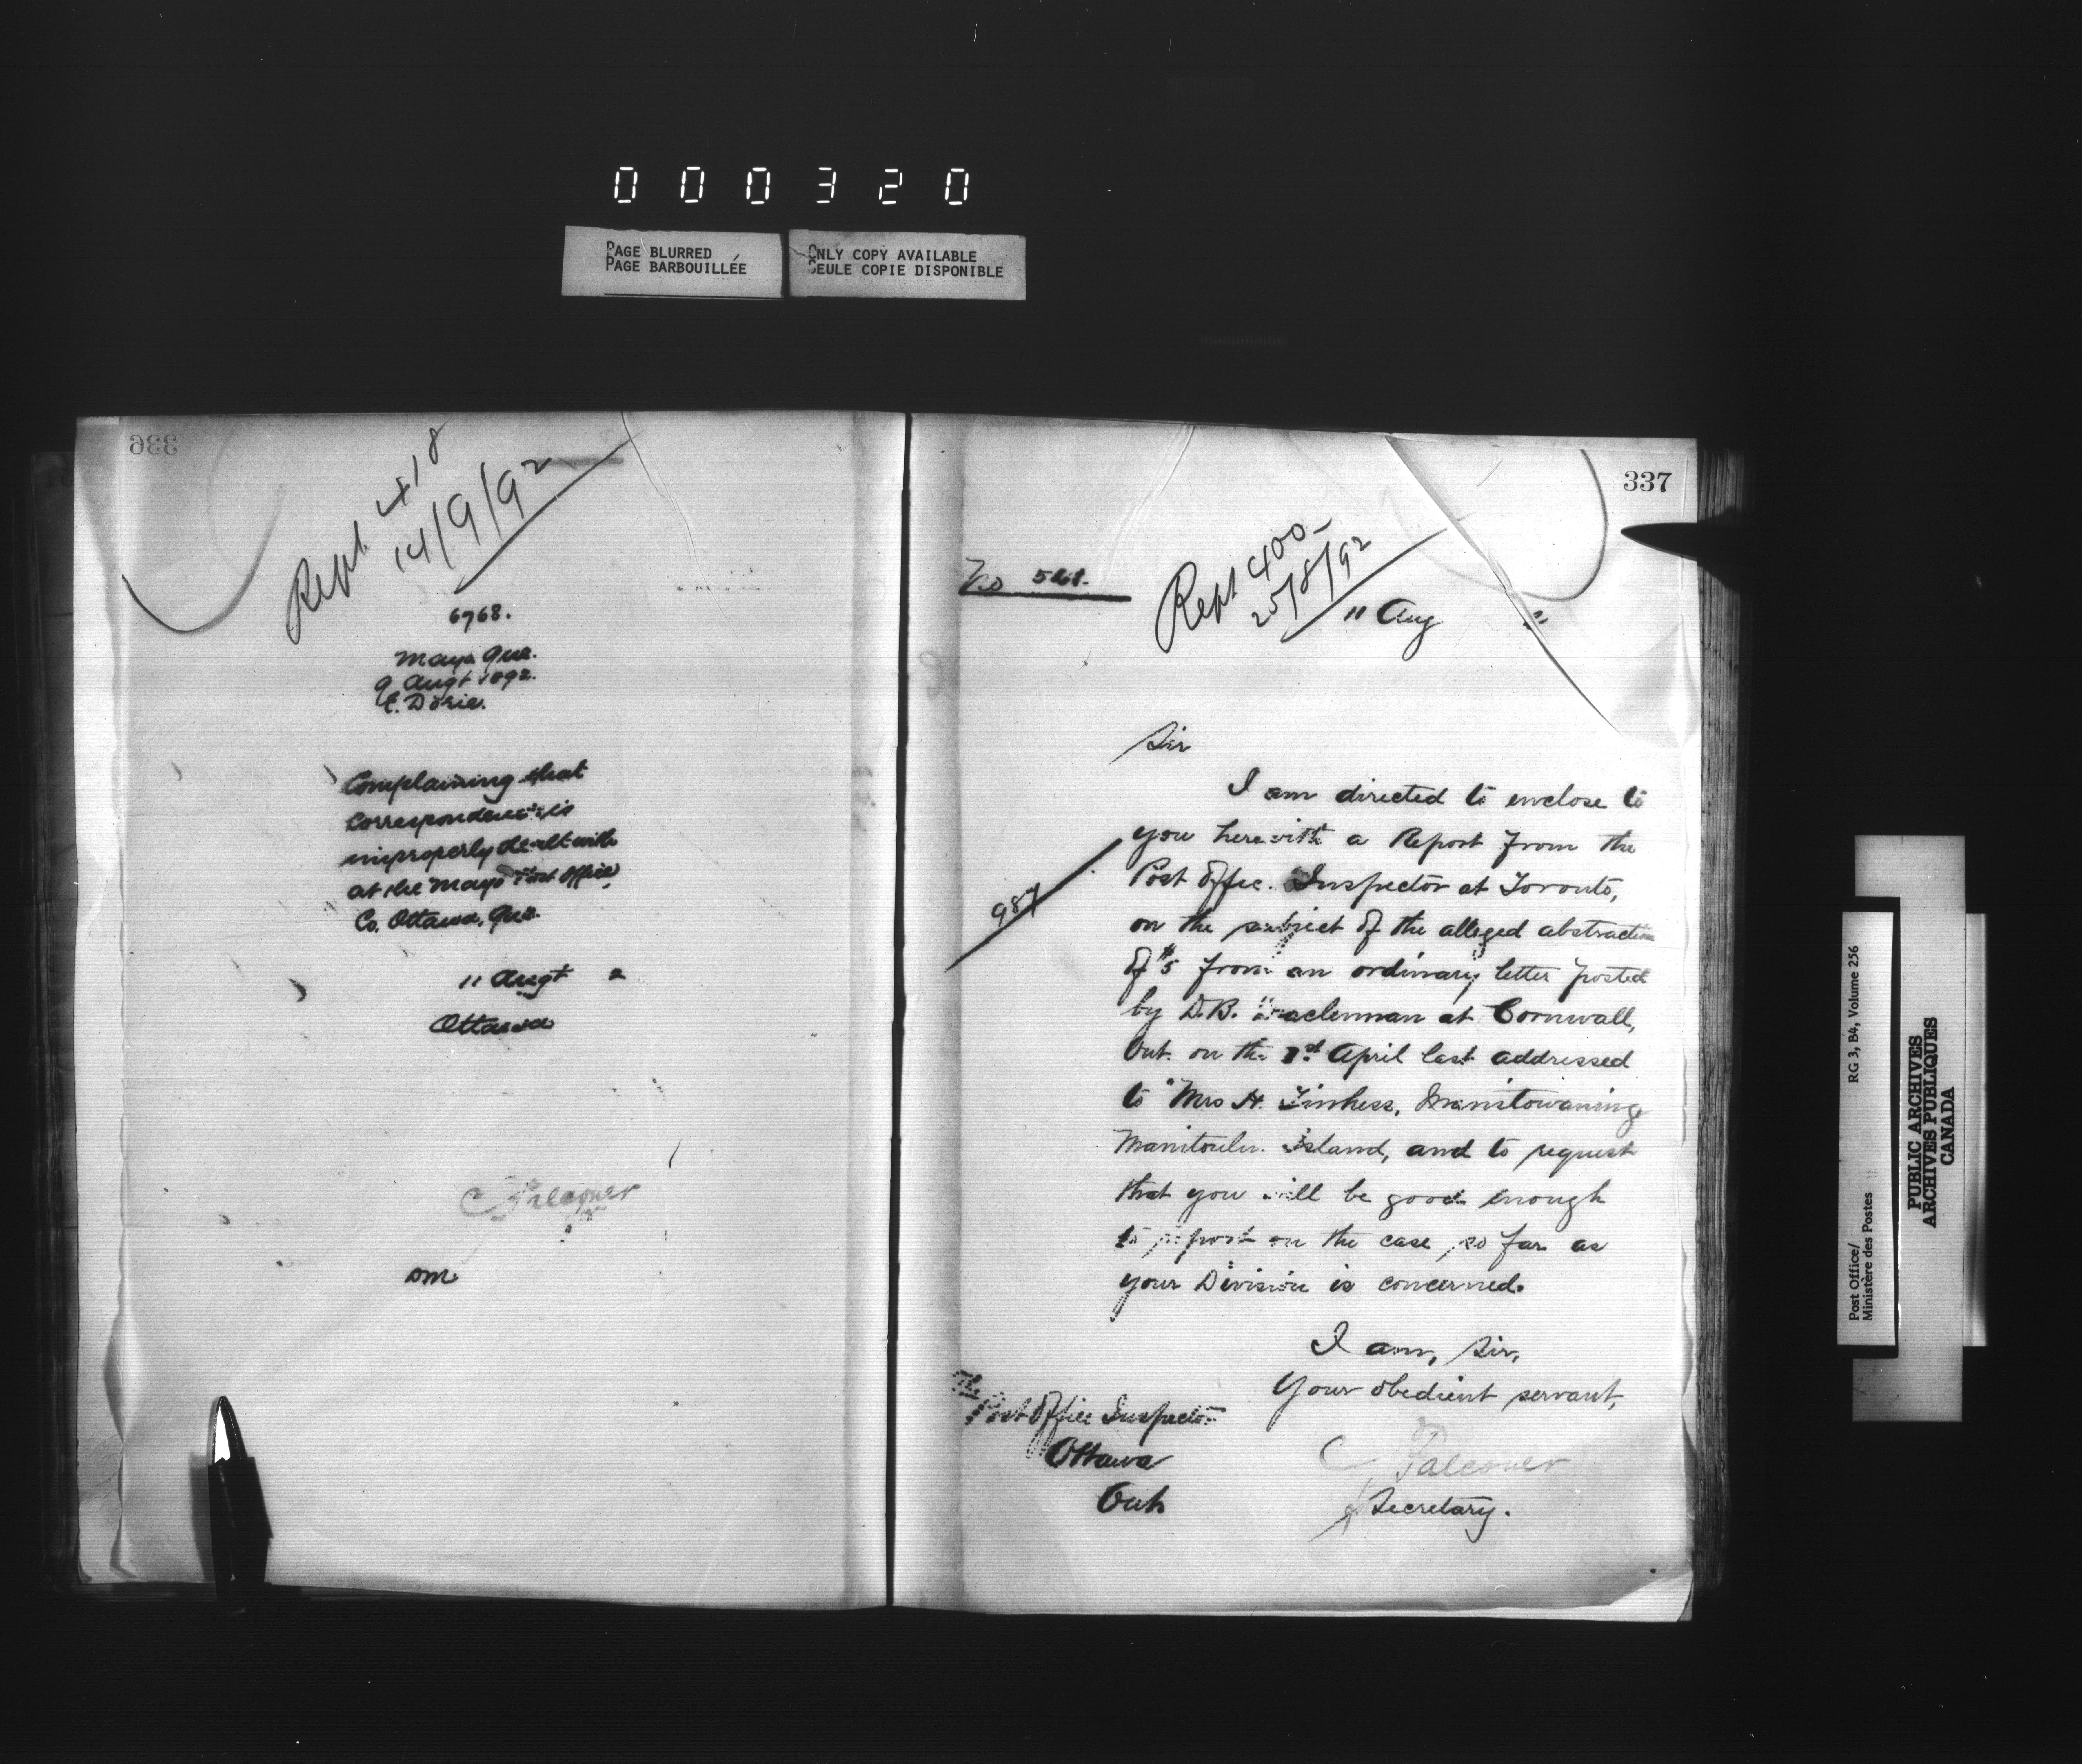 000320
PAGE BLURRED
PAGE BARBOUILLÉE
ONLY COPY AVAILABLE
SEULE COPIE DISPONIBLE
336
Rept 418
14/9/92
6768.
Mayo Que.
9 Augt 1892.
E. Dorie.
Complaining that
correspondence is
improperly dealt with
at the Mayo Post Office,
Co. Ottawa, Que.
11 Augt 2
Ottawa
C Falconer
337
No
Rept 400
25/8/92
11 Aug
Sir
I am directed to enclose to
you herewith a Report from the
987
Post Office Inspector at Toronto,
on the subject of the alleged abstraction
of $5 from an ordinary letter posted
by D.B. at Cornwall,
Ont. on the April last addressed
to "Mrs H. Manitowaning
Manitoulin Island, and to request
that you will be good enough
to report on the case, so far as
your Division is concerned.
I am, Sir,
Your obedient servant,
C Falconer
Secretary.
The
Post Office Inspector
Ottawa
Ont.
Post Office/
Ministère des Postes
RG 3, B4, Volume 256
PUBLIC ARCHIVES
ARCHIVES PUBLIQUES
CANADA